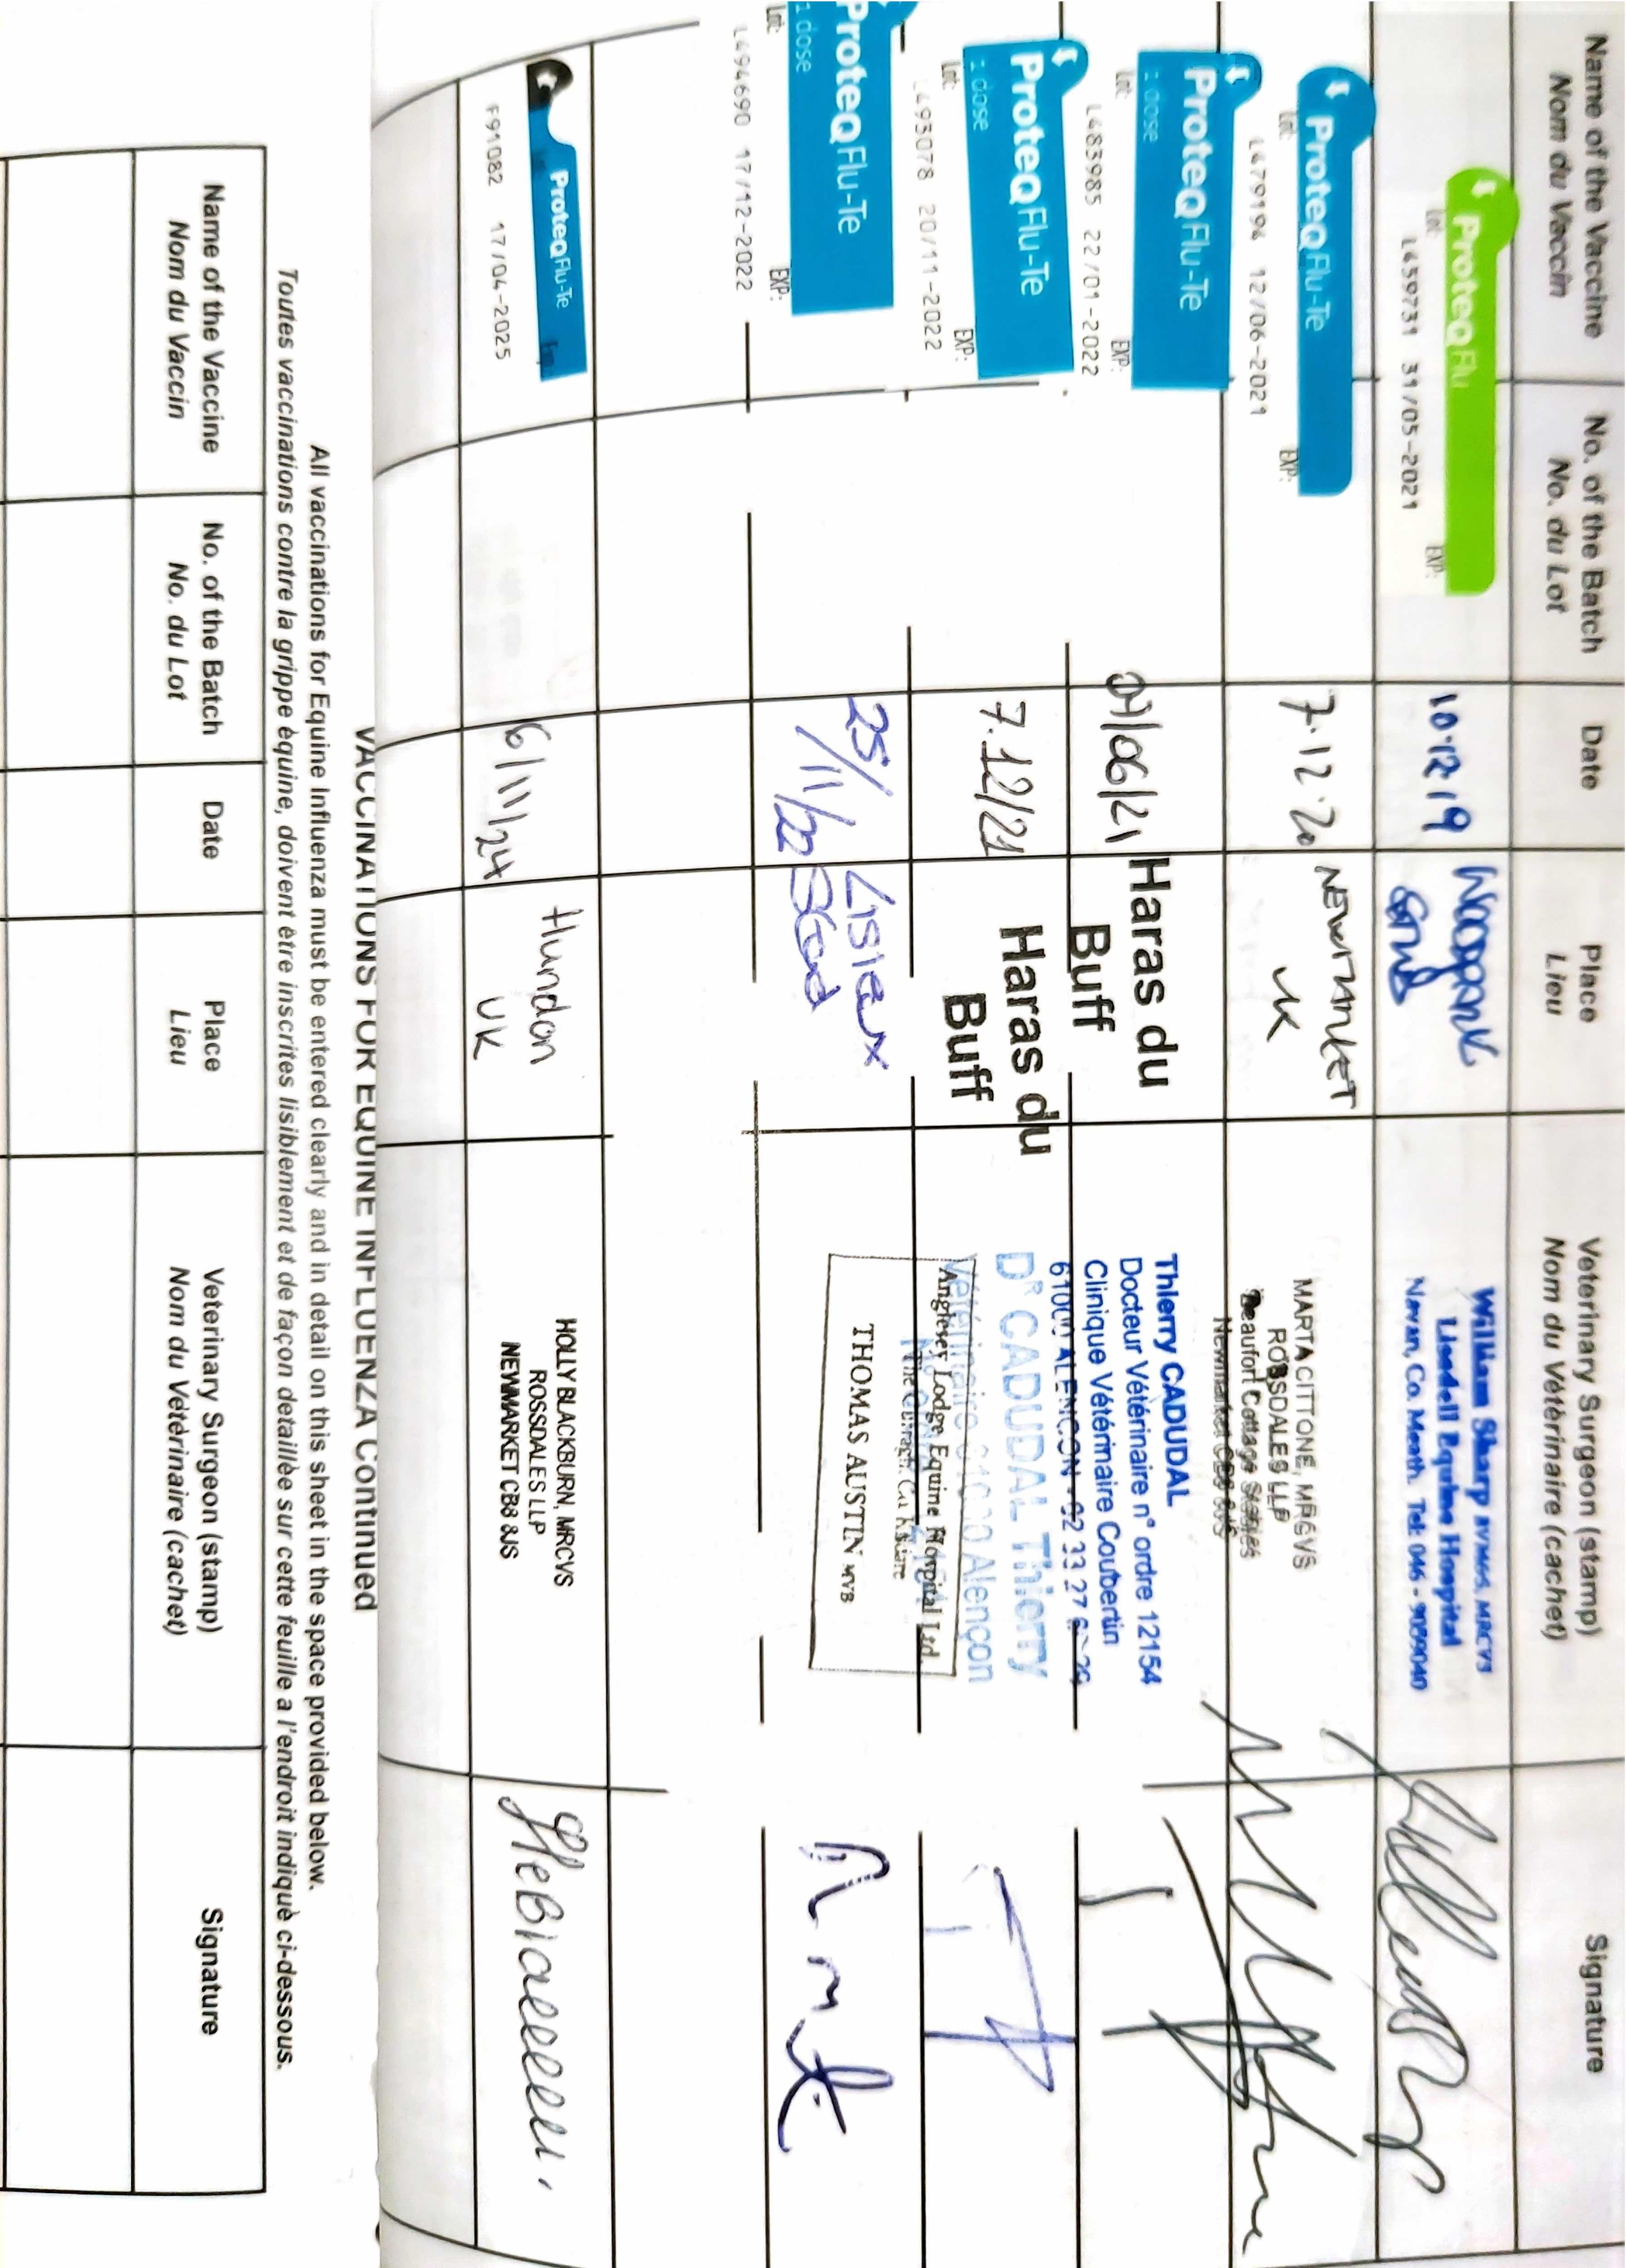 Name of the Vaccine
Nom du Vaccin
No. of the Batch
No. du Lot
Date
Place
Lieu
Veterinary Surgeon (stamp)
Nom du Vétérinaire (cachet)
Signature
ProteqFlu
Lot: EXP:
L459731 31/05-2021
10.12.19
Woodpark
Stud
William Sharp MVMBS, MRCVS
Liscdell Equine Hospital
Navan, Co. Meath. Tel: 046 - 9059040
ProteqFlu-Te
Lot: EXP:
L479194 12/06-2021
7.12.20
NEWMARKET
UK
MARTA CITTONE, MRCVS
ROSSDALES LLP
Beaufort Cottage Stables
Newmarket CB8 8JS
ProteqFlu-Te
1 dose
Lot: EXP:
L483985 22/01-2022
01/06/21
Haras du
Buff
Thierry CADUDAL
Docteur Vétérinaire n° ordre 12154
Clinique Vétérinaire Coubertin
61000 ALENCON - 02 33 27
ProteqFlu-Te
1 dose
Lot: EXP:
L493078 20/11-2022
7.12/21
Haras du
Buff
Dr CADUDAL Thierry
Vétérinaire 61000 Alençon
ProteqFlu-Te
1 dose
Lot: EXP:
L494690 17/12-2022
25/
11/22
Lisieux
Stud
Anglesey Lodge Equine Hospital Ltd.
The Curragh, Co. Kildare
THOMAS AUSTIN MVB
ProteqFlu-Te
Exp
F91082 17/04-2025
6/11/24
Hundon
UK
HOLLY BLACKBURN, MRCVS
ROSSDALES LLP
NEWMARKET CB8 8JS
VACCINATIONS FOR EQUINE INFLUENZA Continued
All vaccinations for Equine Influenza must be entered clearly and in detail on this sheet in the space provided below.
Toutes vaccinations contre la grippe équine, doivent être inscrites lisiblement et de façon detaillée sur cette feuille a l'endroit indiqué ci-dessous.
Name of the Vaccine
Nom du Vaccin
No. of the Batch
No. du Lot
Date
Place
Lieu
Veterinary Surgeon (stamp)
Nom du Vétérinaire (cachet)
Signature